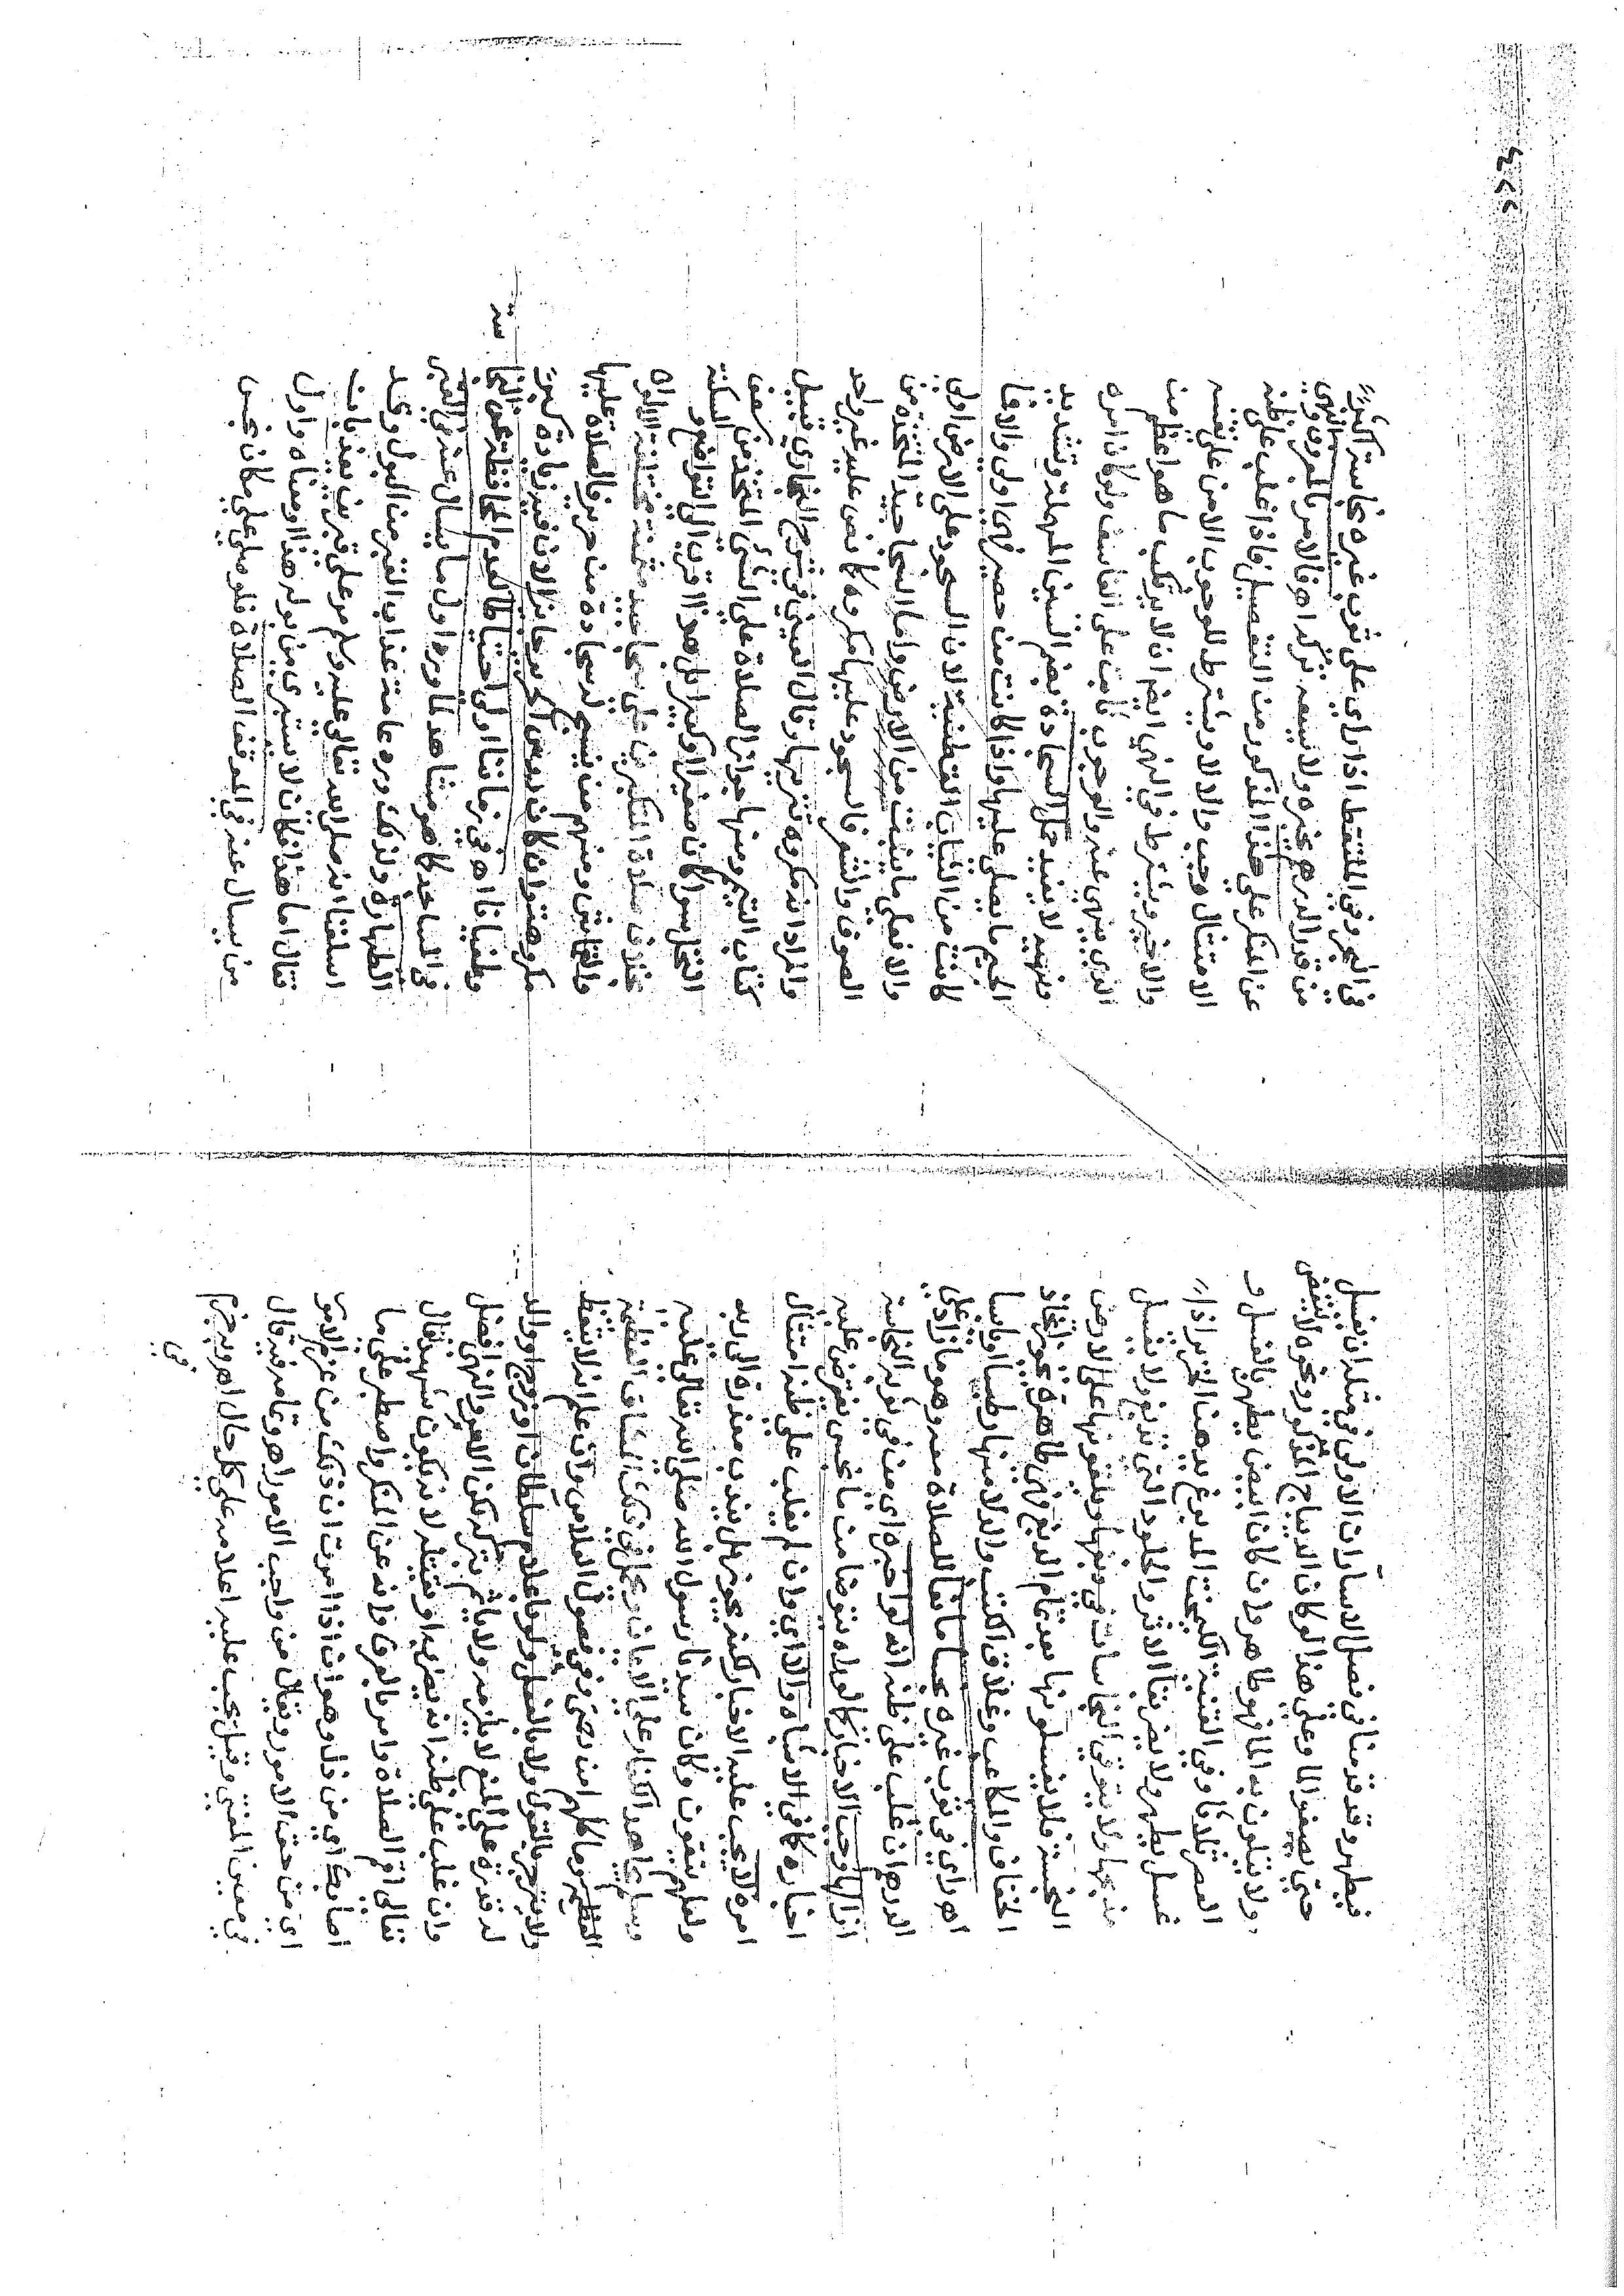 ٤٢٢
فيطهر وقد قدمنا في فصل الاسآرات الاولى في مثله ان تغسل
حتى يصفو الما وعلى هذا لو كان الديباج المذكور ونحوه لا ينقض
ولا يتلون به الما فهو طاهر وان كان ابيض يطهر بالغسل و
العصر ثلاثا وفي القنية الكيمخت المدبوغ بدهن الخنزير اذا
غسل يطهر ولا يضر بقا الاثر والجلود التي تدبغ ولا يغسل
مذبحها ولا يتوقى النجاسات في دبغها ويلقونها على الارض
النجسة ولا يغسلونها بعد تمام الدبغ فهي طاهرة يجوز اتخاذ
الخفاف والمكاعب وغلاف الكتب والدلا منها رطبا او يابسا
اهـ راي في ثوب غيره نجسا مانعا للصلاة منه وهو ما زاد على
الدرهم ان غلب على ظنه انه لو اخبره اي من في ثوبه النجاسة
ازالها وجب الاخبار كما لو راه يتوضا من ما نجس يفترض عليه
اخباره كما في الاشباه والا اي وان لم يغلب على ظنه امتثال
امره لا يجب عليه الاخبار لكنه يجوز بل يندب معذرة الى ربه
ولعلهم يتقون وكان سيدنا رسول الله صلى الله تعالى عليه
وسلم يجاهد الكفار على الايمان ويحل في ذلك المشاق العظيمة
ولا يترجى بالقوى ولا بالفعل ولو باعلام سلطان او زوج او والد
له قدرة على المنع لا يلزمه ولا ياثم بتركه لكن الامر والنهي افضل
وان غلب على ظنه انه يضربه او يقتله لانه يكون شهيدا قال
تعالى اقم الصلاة وامر بالمعروف وانه عن المنكر واصبر على ما
اصابك اي من ذل وهوان اذا امرت ان ذلك من عزم الامور
اي من حق الامور ويقال من واجب الامور اهـ وتمامه فيه قال
في معين المفتي وقيل يجب عليه اعلامه على كل حال اهـ وبه جزم
في
في البحر وفي الملتقط اذا راي على ثوب غيره نجاسة اكثر
من قدر الدرهم يخبره ولا يسعه تركه اهـ فالامر بالمعروف والنهي
عن المنكر على هذا المذكور من التفصيل فاذا غلب على ظنه
الامتثال وجب والا لا ويشترط للوجوب الامن على نفسه
والاخير ويشترط في النهي ايضا ان لا يرتكب ما هو اعظم من
الذي ينهى عنه والوجوب ثابت على الفاسق ولو كان امره
ونهيه لا يفيد حمل السجادة بفتح السين المهملة وتشديد
الجيم ما يصلي عليها واذا كانت من حصير فهي اولى والا فما
كانت من الثياب القطنية لان السجود على الارض اولى
والافضل ما ينبت من الارض واما السجاجيد المتخذة من
الصوف والشعر فالسجود عليها مكروه كما نص عليه غير واحد
والمراد انه مكروه تنزيها وقال العيني في شرح البخاري قبيل
كتاب التيمم ومنها جواز الصلاة على الشي المتخذ من سعف
النخل سوا كان صغيرا او كبيرا بل هذا اقرب الى التواضع والمسكنة
بخلاف صلاة المتكبرين على سجاجيد مثمنة مختلفة الالوان
والنقاش ومنهم من ينسج له سجادة من حرير فالصلاة عليها
مكروهة وان كان دوس الحرير جائزا لان فيه زيادة كبر
وطغيانا اهـ في زماننا اولى احتياطا لعدم المحافظة على النجاسة
في المساجد كما هو مشاهد لما ورد اول ما يسال عنه في القبر
الطهارة ولذلك ورد عامة عذاب القبر من البول وعند
اسلفنا انه صلى الله تعالى عليه وسلم مر على قبرين يعذبان
فقال اما هذا فكان لا يستبري من بوله هذا او معناه واول
من يسال عنه في الموقف الصلاة فلو صلى على مكان نجس